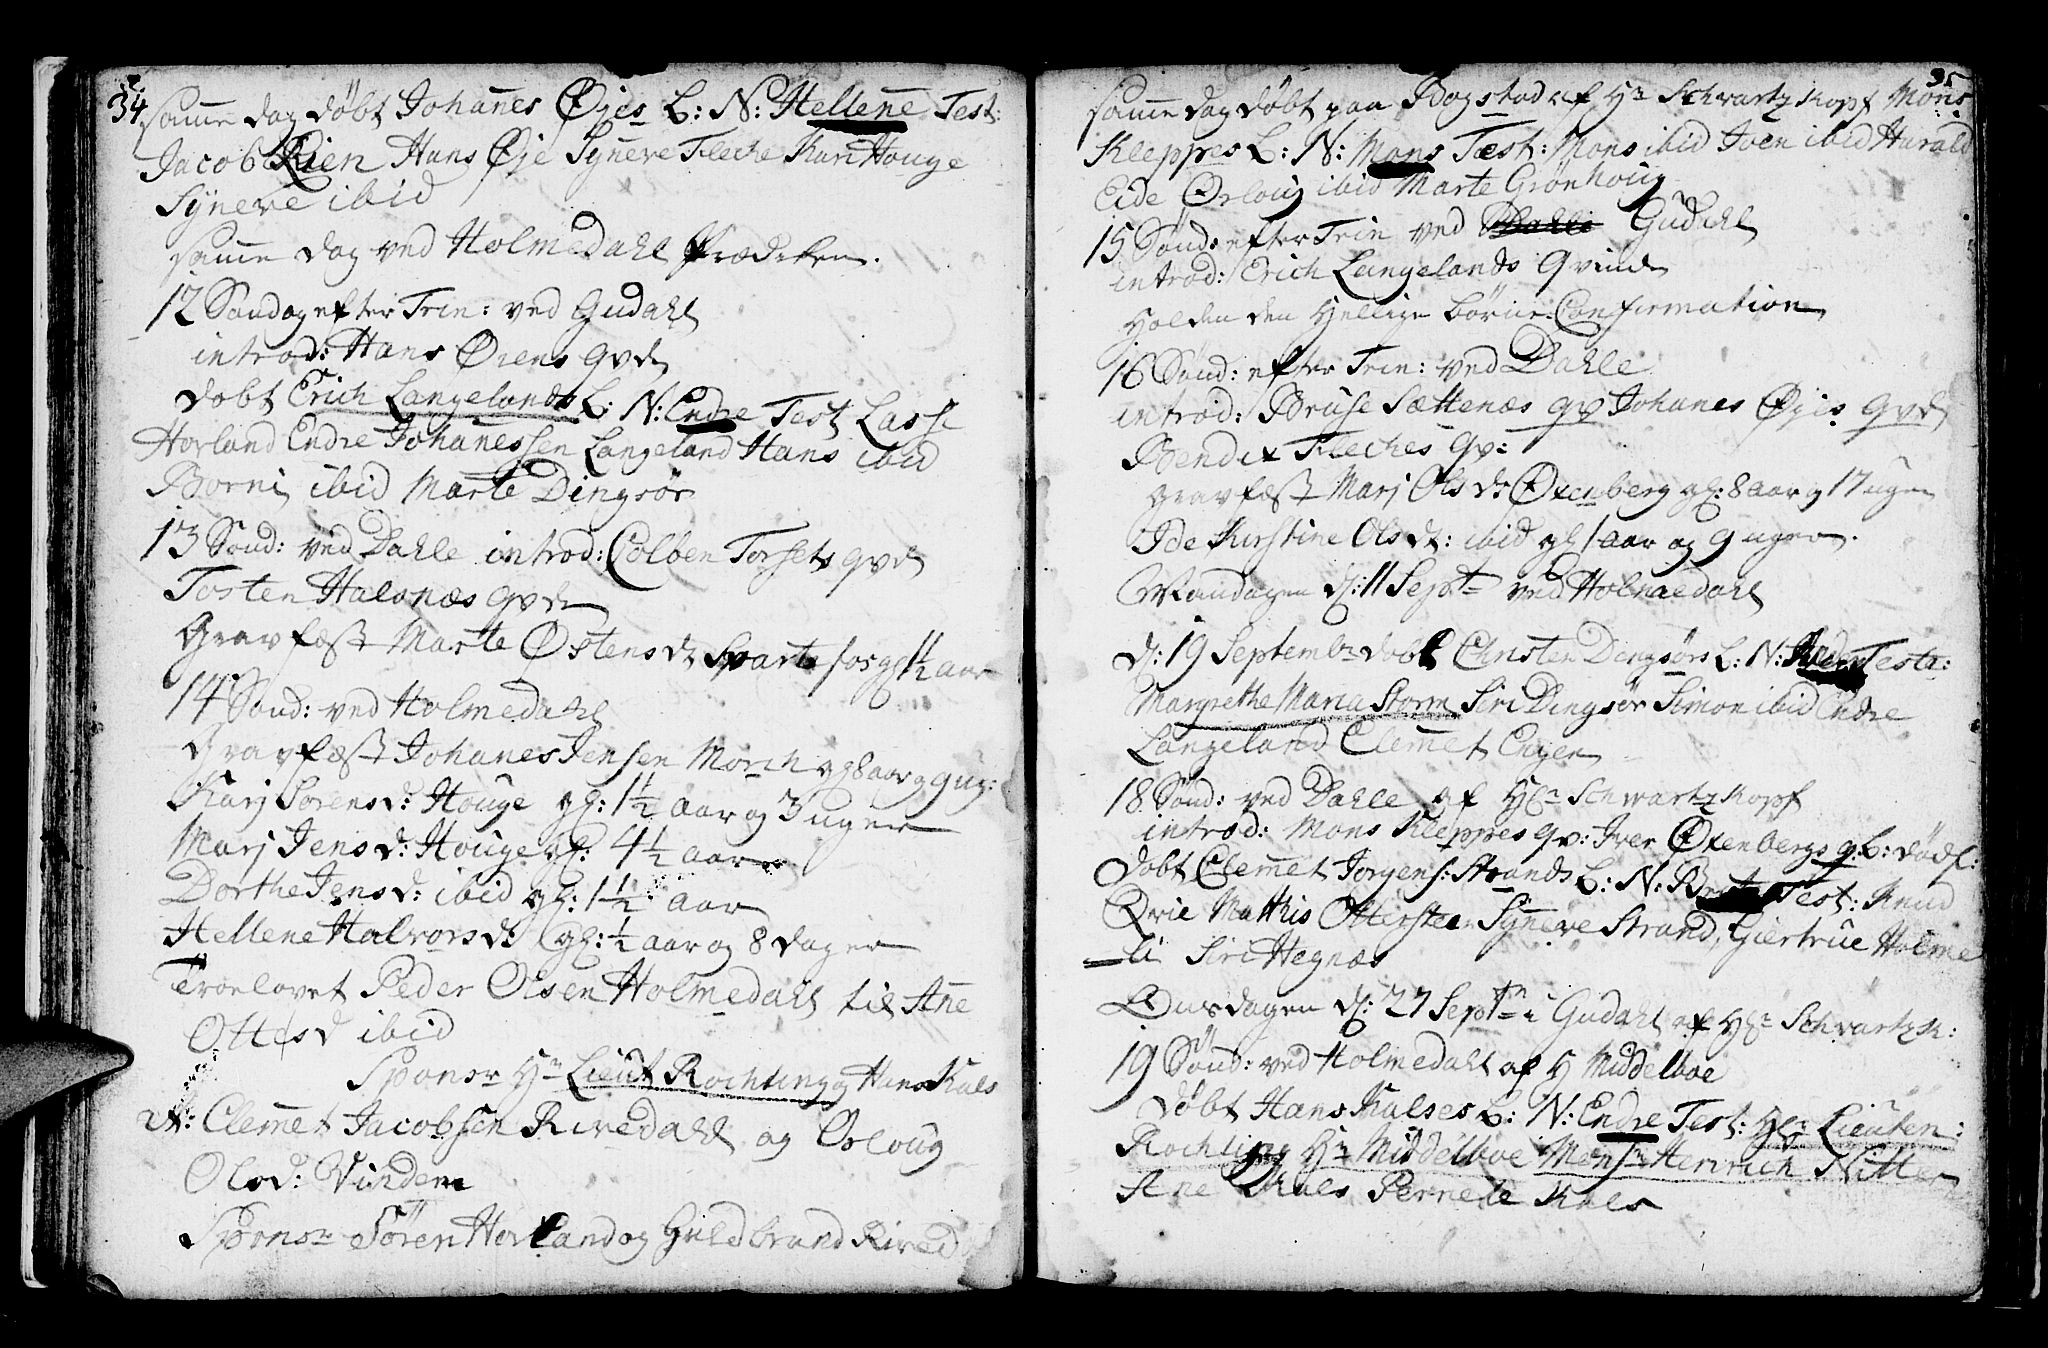 34
samme dag døbt Johannes Øies L: N: Hellene Test:
Jacob Rien Hans Øje Syneve Fleche Kari Houge
Syneve ibid
samme dag ved Holmedahl Prædiken.
12 Søndag efter Trin: ved Gudahl
introd: Hans Øiens qvd
døbt Erich Langelands L: N: Endre Test Lasse
Horland Endre Johanessen Langeland Hans ibid
Borni ibid Marte Dingsør
13 Sønd: ved Dahle introd: Colben Torsets qvd
Tosten Halsnæs qvd
Gravfæst Marte Østensd Svartefos gl 1½ aar
14 Sønd: ved Holmedahl
Gravfæst Johanes Jensen Morch gl 8 aar og 9 ug:
Karj Sorensd: Houge gl: 1½ aar og 3 uger
Marj Jensd: Houge gl: 4½ aar
Dorthe Jensd: ibid gl: 1½ aar
Hellene Halvorsd: gl: ½ aar og 8 dager
Troelovet Peder Olsen Holmedahl til Ane
Ottesd ibid
Sponsr Hr Lieut Rochling og Hans Kals
it: Clemet Jacobsen Rivedahl og Orloug
Olsd: Vinden
Sponsr Søren Horland og Guldbrand Rived
35
samme dag døbt paa Bogstad af Hr Schwartzkopf Mons
Kleppes L: N: Mons Test: Mons ibid Iven ibid Harald
Eide Orloug ibid Marte Grønhoug
15 Sønd: efter Trin ved Dahle Gudahl
introd: Erich Langelands Qvinde
Holden den Hellige børne Confirmation
16 Sønd: efter Trin: ved Dahle
introd: Bruse Sættenæs qv Johanes Øies qvd
Bendix Fleches qv:
Gravfæst Marj Olsd: Oxenberg gl: 8 aar og 17 uger
Ide Kirstine Olsdt: ibid gl 1 aar og 9 uger.
Mandagen d: 11 Sept ved Holmedahl
d: 19 Septembr døbt Christen Dingsørs L: N: Test:
Margrethe Maria Storm Siri Dingsør Simon ibid Endre
Langeland Clemet Engen
18 Sønd: ved Dahle af Hr Schwartzkopf
introd: Mons Kleppes qv: Iver Oxenbergs q: L: dødf:
døbt Clemet Jorgens: Strands L: N: Test: Knud
Qvie Mathis Otterstee Syneve Strand, Giertrue Holme
li Siri Hegnæs
Onsdagen d: 27 Septr i Gudahl af Hr Schwartzk:
19 Sønd: ved Holmedahl af H Middelboe
døbt Hans Kalses L: N: Endre Test: Hr Lieuten:
Rochling Hr Middelboe Monsr Henrich Nitter
Ane Kals Pernele Kals